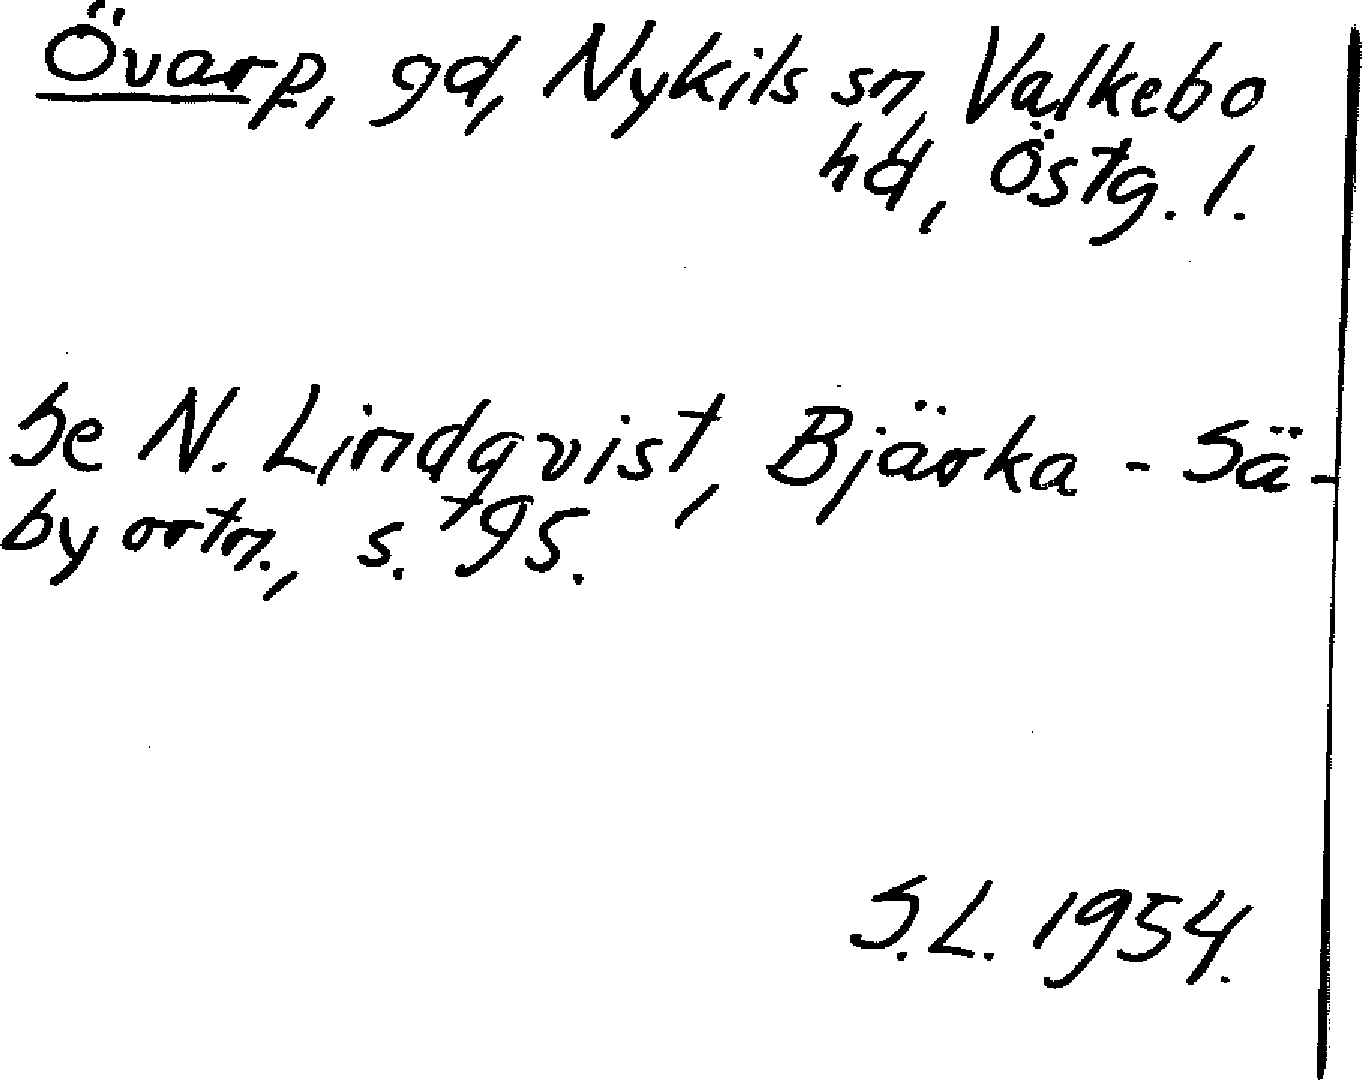 Övarp, gd, Nykils sn, Valkebo
hd, Östg. l.
Se N. Lindqvist, Bjärka - Sä-
by ortn., s. 495.
S.L. 1954.